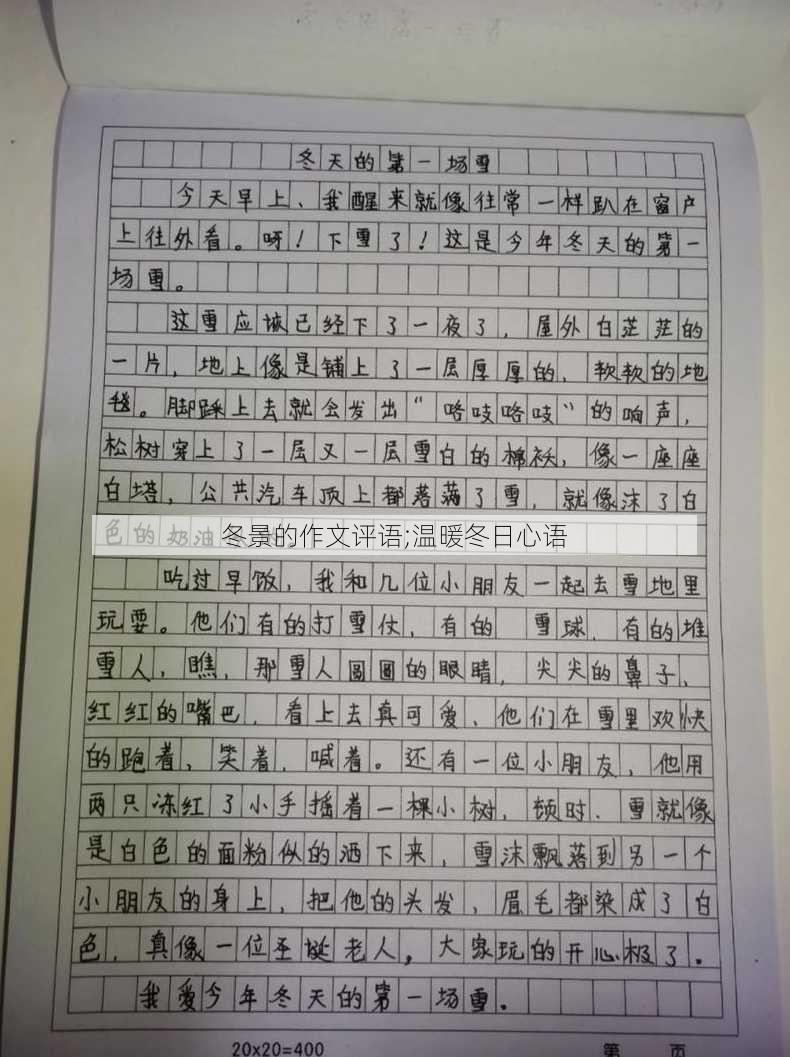 冬天的第一场雪
今天早上、我醒来就像往常一样趴在窗户
上往外看。呀！下雪了！这是今年冬天的第一
场雪。
这雪应该已经下了一夜了，屋外白茫茫的
一片，地上像是铺上了一层厚厚的、软软的地
毯。脚踩上去就会发出“咯吱咯吱”的响声，
松树穿上了一层又一层雪白的棉袄，像一座座
白塔，公共汽车顶上都落满了雪，就像沫了白
色的奶油
冬景的作文评语;温暖冬日心语
吃过早饭，我和几位小朋友一起去雪地里
玩耍。他们有的打雪仗，有的 雪球，有的堆
雪人，瞧，那雪人圆圆的眼睛，尖尖的鼻子、
红红的嘴巴，看上去真可爱、他们在雪里欢快
的跑着，笑着，喊着。还有一位小朋友，他用
两只冻红了小手摇着一棵小树，顿时、雪就像
是白色的面粉似的洒下来，雪沫飘落到另一个
小朋友的身上，把他的头发，眉毛都染成了白
色，真像一位圣诞老人，大家玩的开心极了。
我爱今年冬天的第一场雪。
20x20=400
第 页